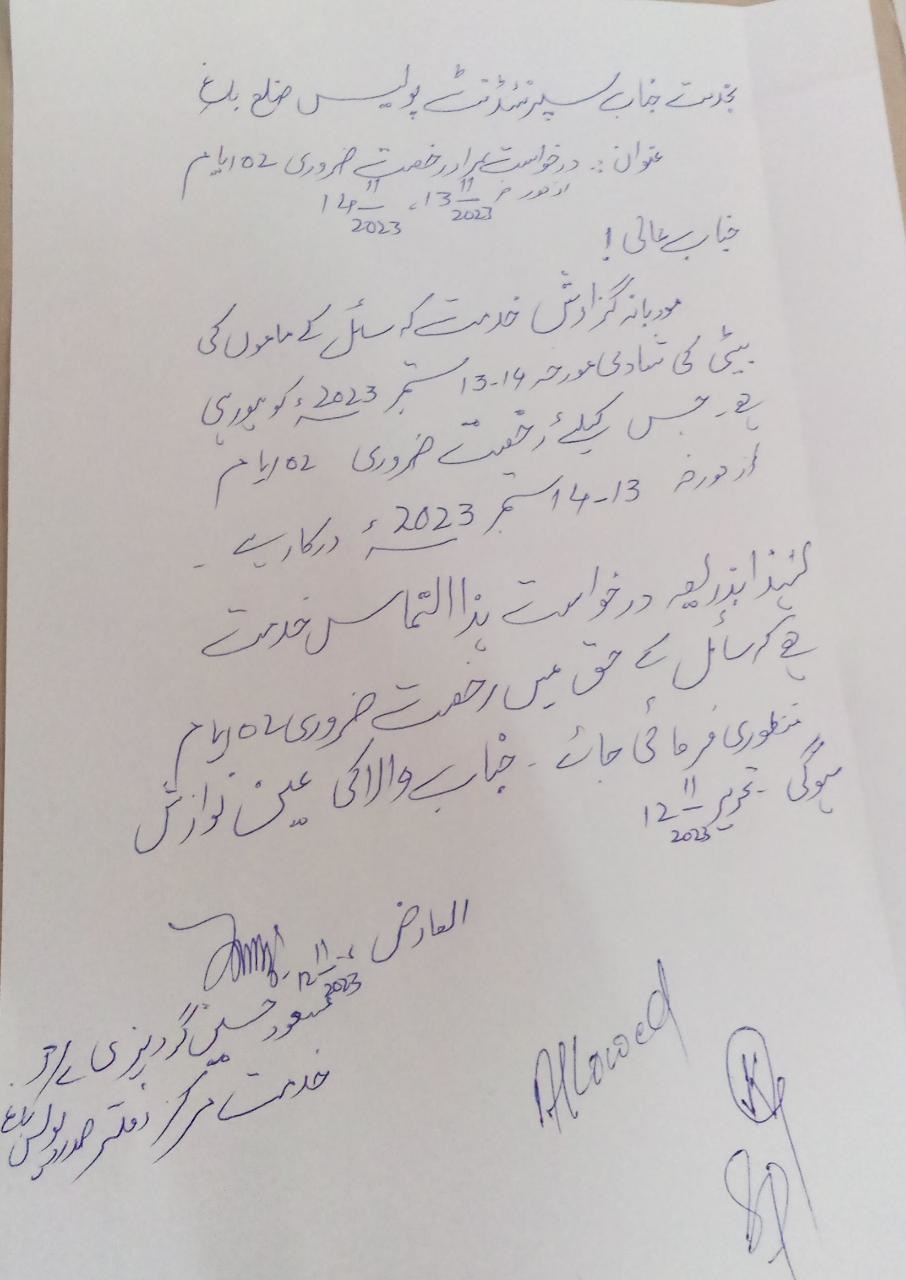 بخدمت جناب سپرنٹنڈنٹ پولیس ضلع باغ
عنوان :۔ درخواست بمراد رخصت ضروری 02 ایام
از مورخہ 13-11-2023، 14-11-2023
جناب عالی !
مودبانہ گزارش خدمت کہ سائل کے ماموں کی
بیٹی کی شادی مورخہ 14-13 ستمبر 2023ء کو ہو رہی
ہے۔ جس کیلئے رخصت ضروری 02 ایام
از مورخہ 13-14 ستمبر 2023ء درکار ہے ۔
لہٰذا بذریعہ درخواست ہذا التماس خدمت
ہے کہ سائل کے حق میں رخصت ضروری 02 ایام
منظوری فرمائی جائے ۔ جناب والا کی عین نوازش
ہوگی ۔ تحریر 12-11-2023
العارض
12-11-2023
مسعود حسین گردیزی
خدمت مرکز دفتر صدر پولیس باغ
Allowed
SP